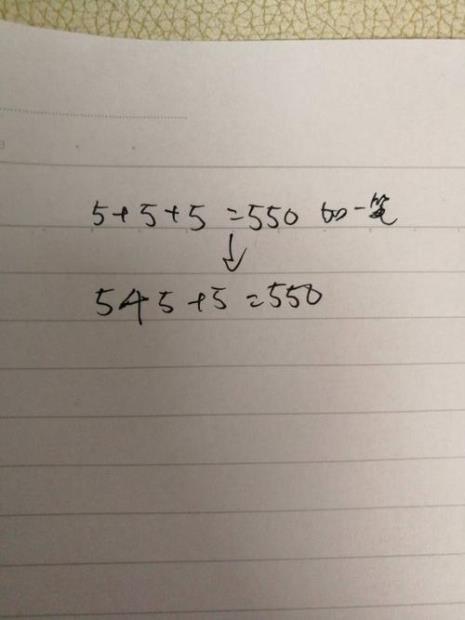 5+5+5=550 加一笔
↓
545+5=550